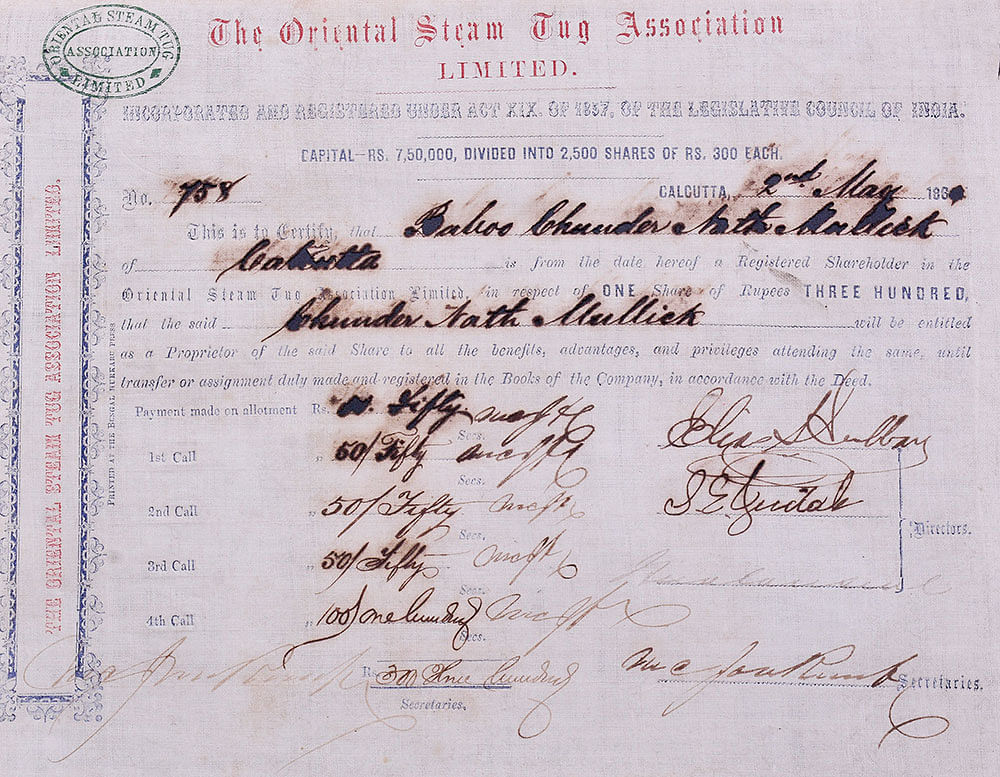 ORIENTAL STEAM TUG
ASSOCIATION
LIMITED
The Oriental Steam Tug Association
LIMITED.
INCORPORATED AND REGISTERED UNDER ACT XIX. OF 1857, OF THE LEGISLATIVE COUNCIL OF INDIA.
CAPITAL—RS. 7,50,000, DIVIDED INTO 2,500 SHARES OF RS. 300 EACH.
No. 758 CALCUTTA, 2nd May 186
This is to Certify, that Baboo Chunder Nath Mullick
of Calcutta is from the date hereof a Registered Shareholder in the
Oriental Steam Tug Association Limited, in respect of ONE Share of Rupees THREE HUNDRED,
that the said Chunder Nath Mullick will be entitled
as a Proprietor of the said Share to all the benefits, advantages, and privileges attending the same, until
transfer or assignment duly made and registered in the Books of the Company, in accordance with the Deed.
Payment made on allotment Rs. Fifty
Secs.
1st Call " 50/ Fifty
Secs.
2nd Call " 50/ Fifty
Secs.
3rd Call " 50/ Fifty
Secs.
4th Call " 100/ One hundred
Secs.
Directors.
Rs. 300 Three hundred
Secretaries.
Secretaries.
THE ORIENTAL STEAM TUG ASSOCIATION LIMITED.
PRINTED AT THE BENGAL HURKARU PRESS